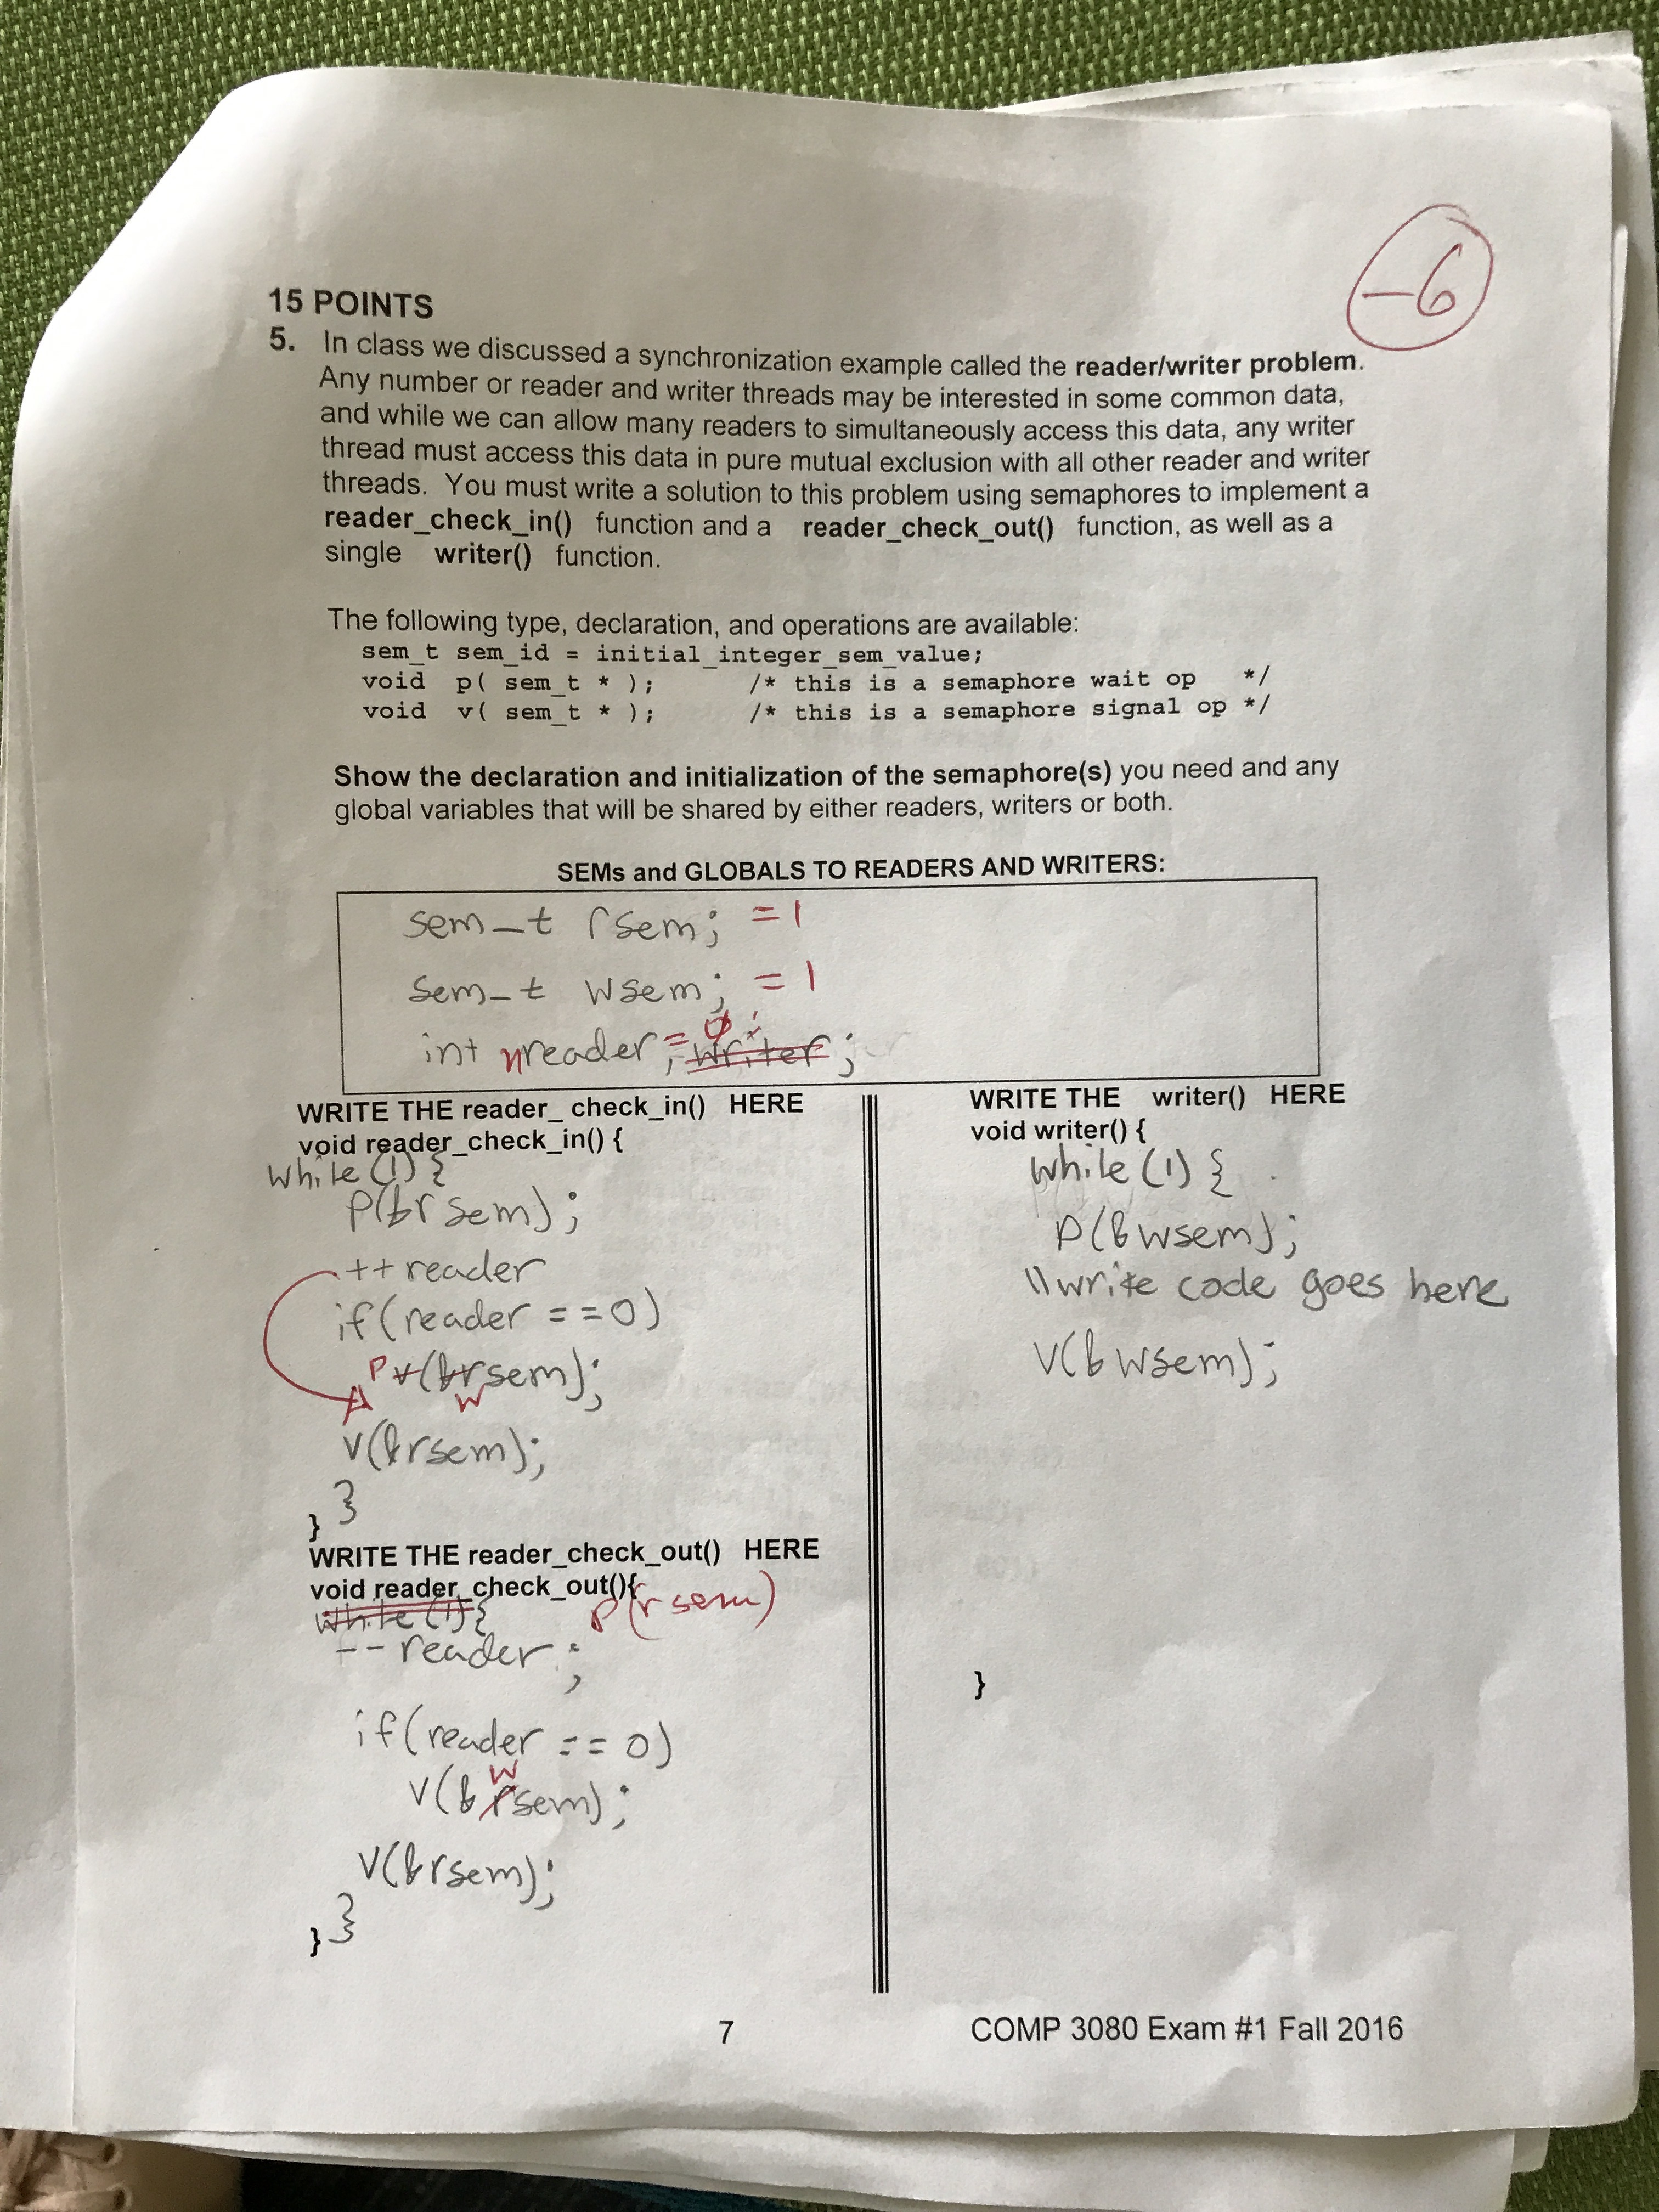 -6
15 POINTS
5. In class we discussed a synchronization example called the reader/writer problem.
Any number or reader and writer threads may be interested in some common data,
and while we can allow many readers to simultaneously access this data, any writer
thread must access this data in pure mutual exclusion with all other reader and writer
threads. You must write a solution to this problem using semaphores to implement a
reader_check_in() function and a reader_check_out() function, as well as a
single writer() function.
The following type, declaration, and operations are available:
sem_t sem_id = initial_integer_sem_value;
void p( sem_t * ); /* this is a semaphore wait op */
void v( sem_t * ); /* this is a semaphore signal op */
Show the declaration and initialization of the semaphore(s) you need and any
global variables that will be shared by either readers, writers or both.
SEMs and GLOBALS TO READERS AND WRITERS:
sem_t rsem; = 1
sem_t wsem; = 1
int nreader, = 0; writer;
WRITE THE reader_ check_in() HERE
void reader_check_in() {
while (1) {
p(&rsem);
++reader
if(reader ==0)
P v(&rsem);
w
v(&rsem);
}
}
WRITE THE reader_check_out() HERE
void reader_check_out(){
P(rsem)
while (1) {
-- reader ;
if(reader == 0)
w
v(&rsem);
v(&rsem);
}
}
WRITE THE writer() HERE
void writer() {
while (1) {
p(&wsem);
\\write code goes here
v(&wsem);
}
7
COMP 3080 Exam #1 Fall 2016